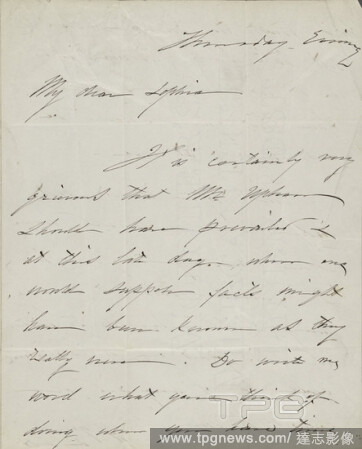 Thursday Evening
My dear Sophia
It is certainly very
grievous that Mr Upham
should have prevailed
at this late day, when one
would suppose facts might
have been known as they
really were. Do write me
word what you think of
doing when you have time
TPG
www.tpgnews.com/ 達志影像